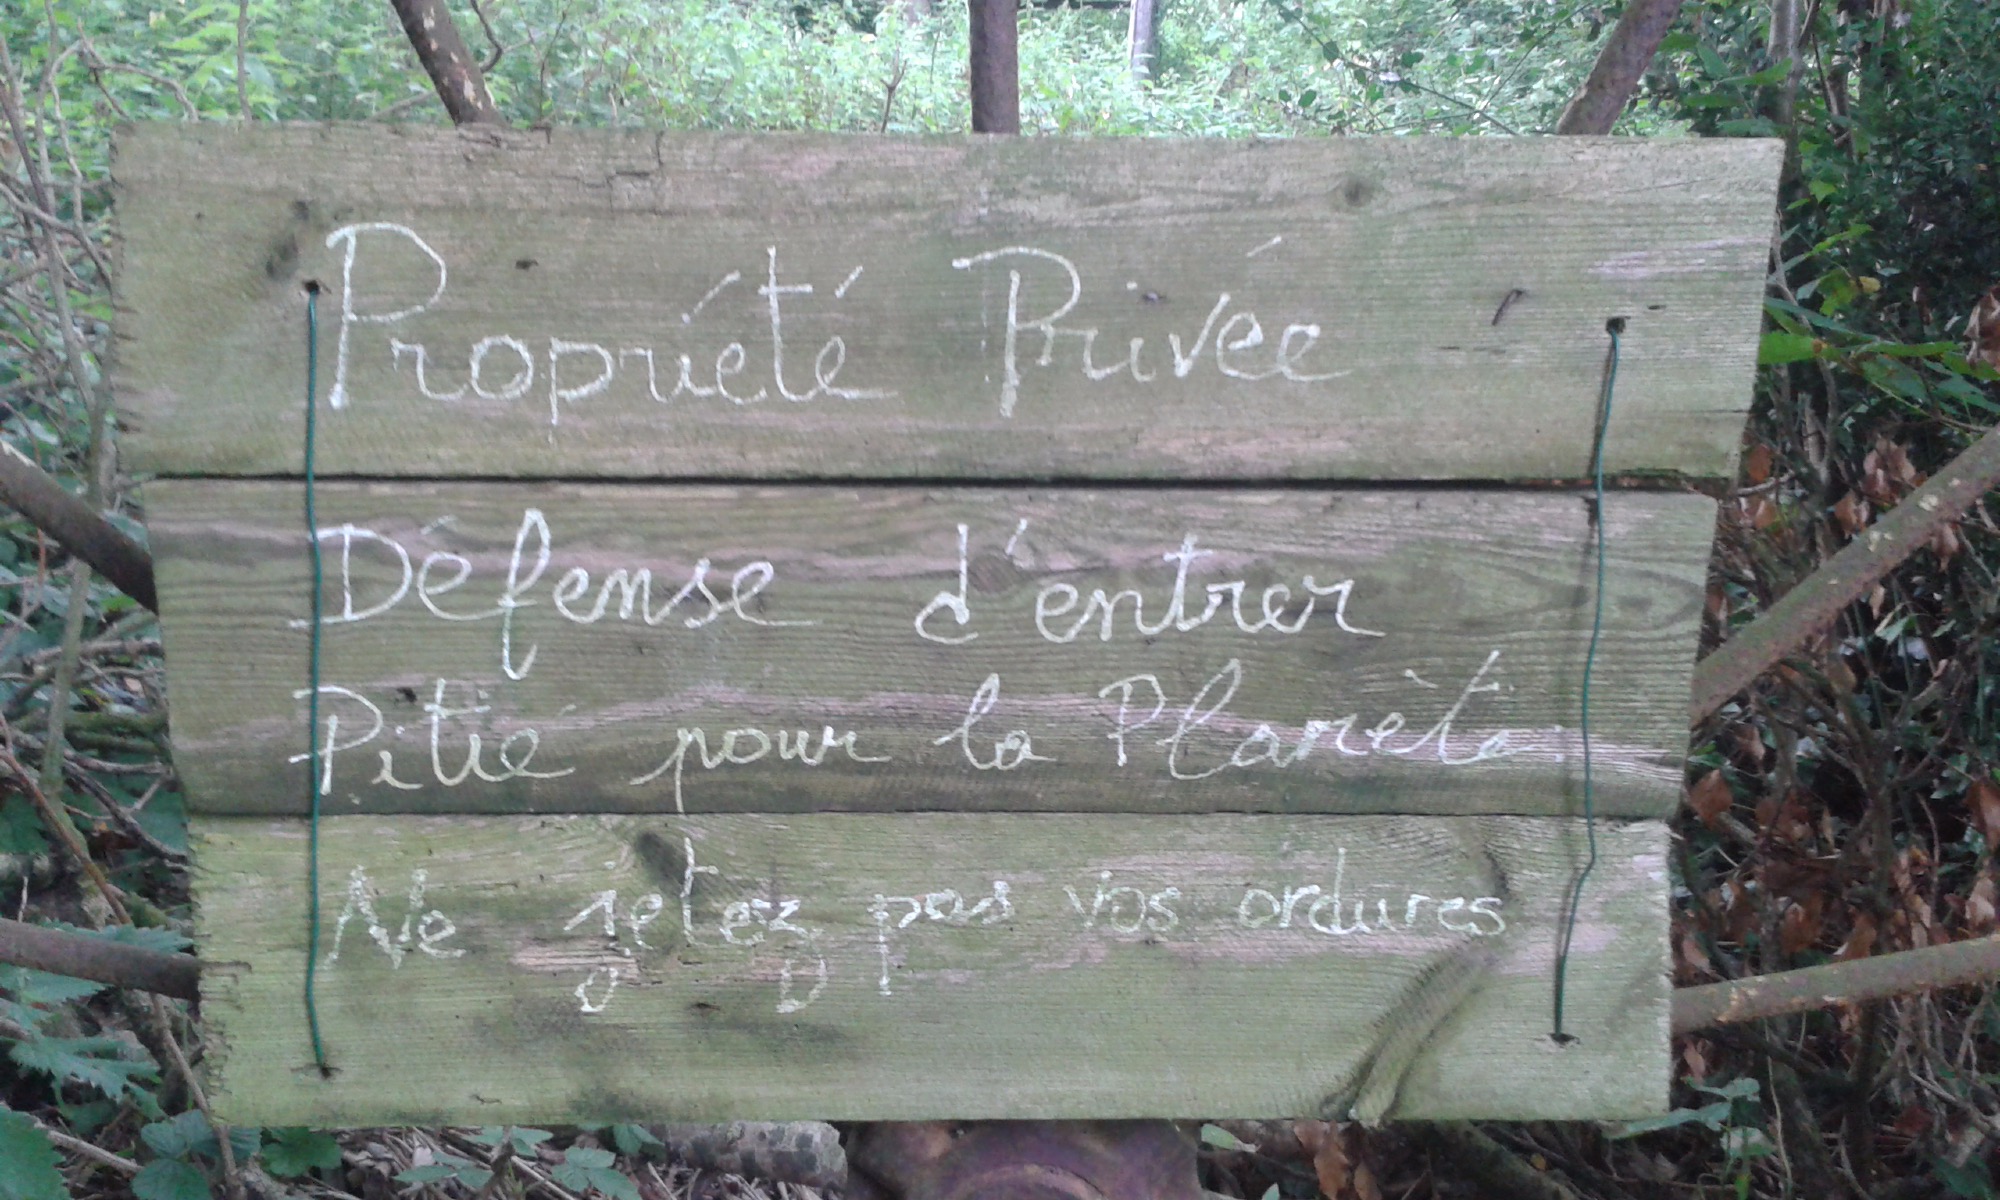 Propriété Privée
Défense d'entrer
Pitié pour la Planète
Ne jetez pas vos ordures